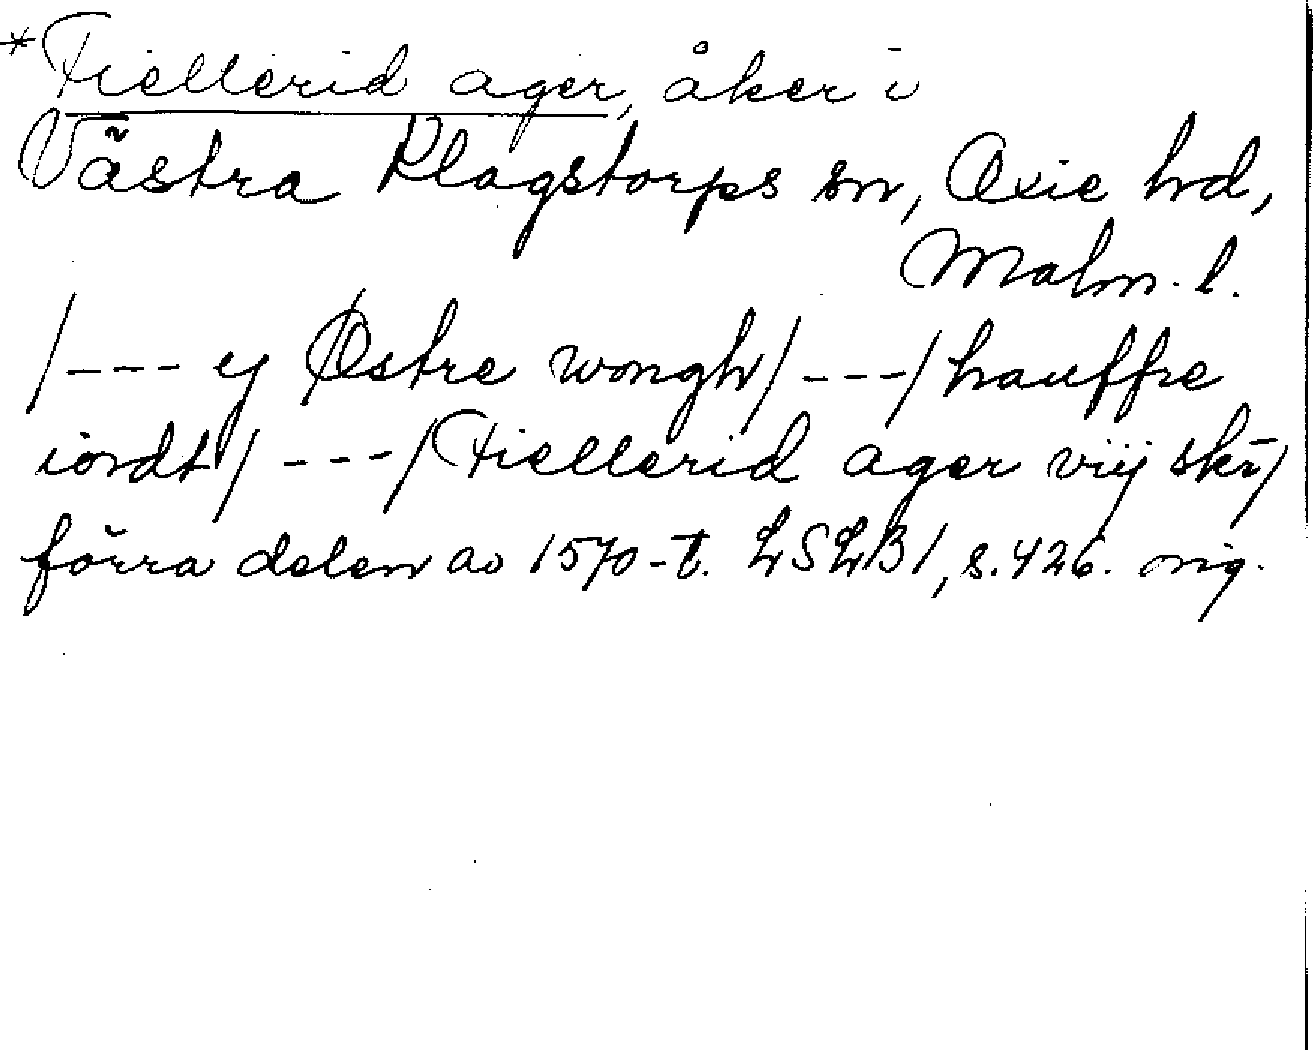 *Fiellerid ager, åker i
Västra Klagstorps sn, Oxie hd,
Malm. l.
/--- ej Østre wongh/ ---/ hauffre
iordt/ ---/ Fiellerid ager viij skr/
förra delen av 1570-t. LSLB1, s. 426. orig.